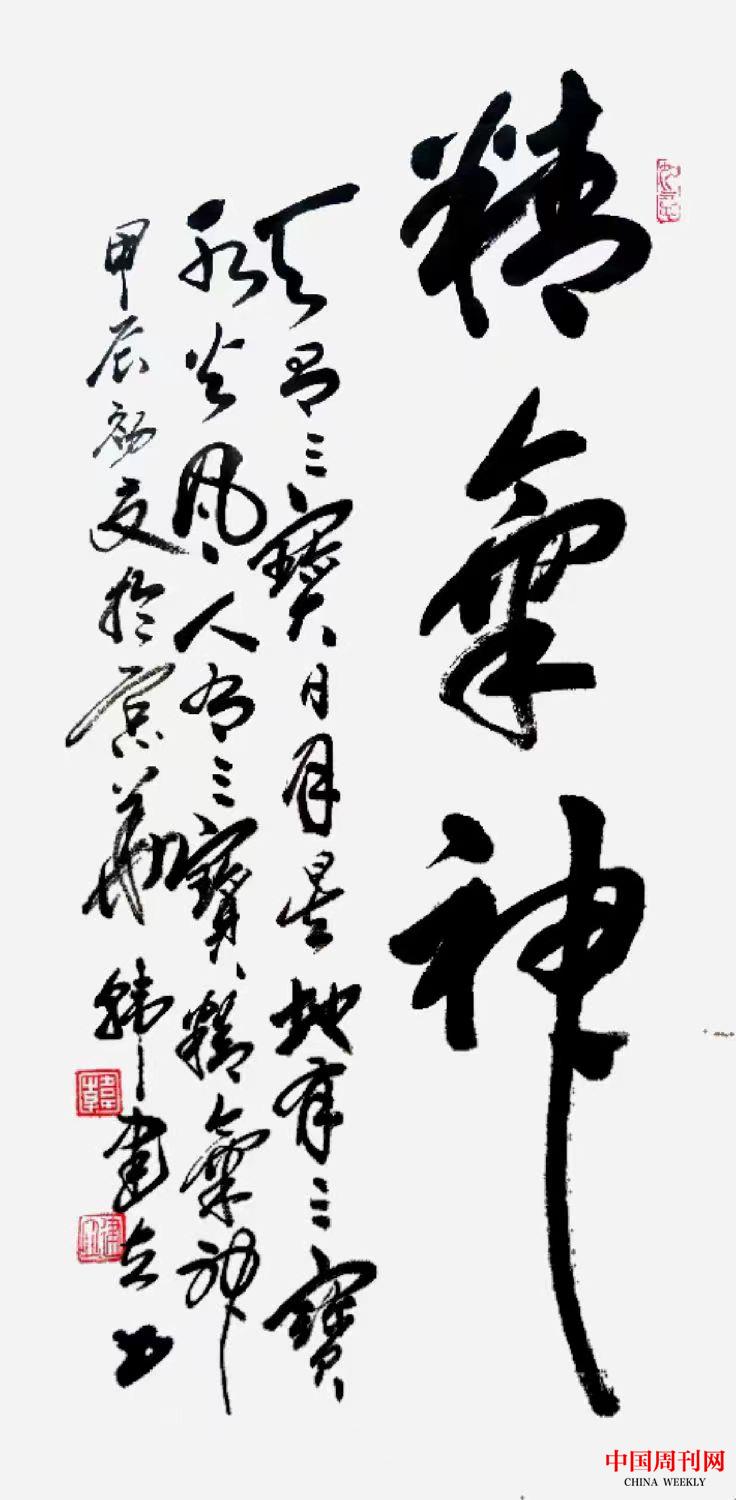 精氣神
天有三寶日月星地有三寶
水火風人有三寶精氣神
甲辰初夏於京華韓建立書
韓
建立
中国周刊网
CHINA WEEKLY